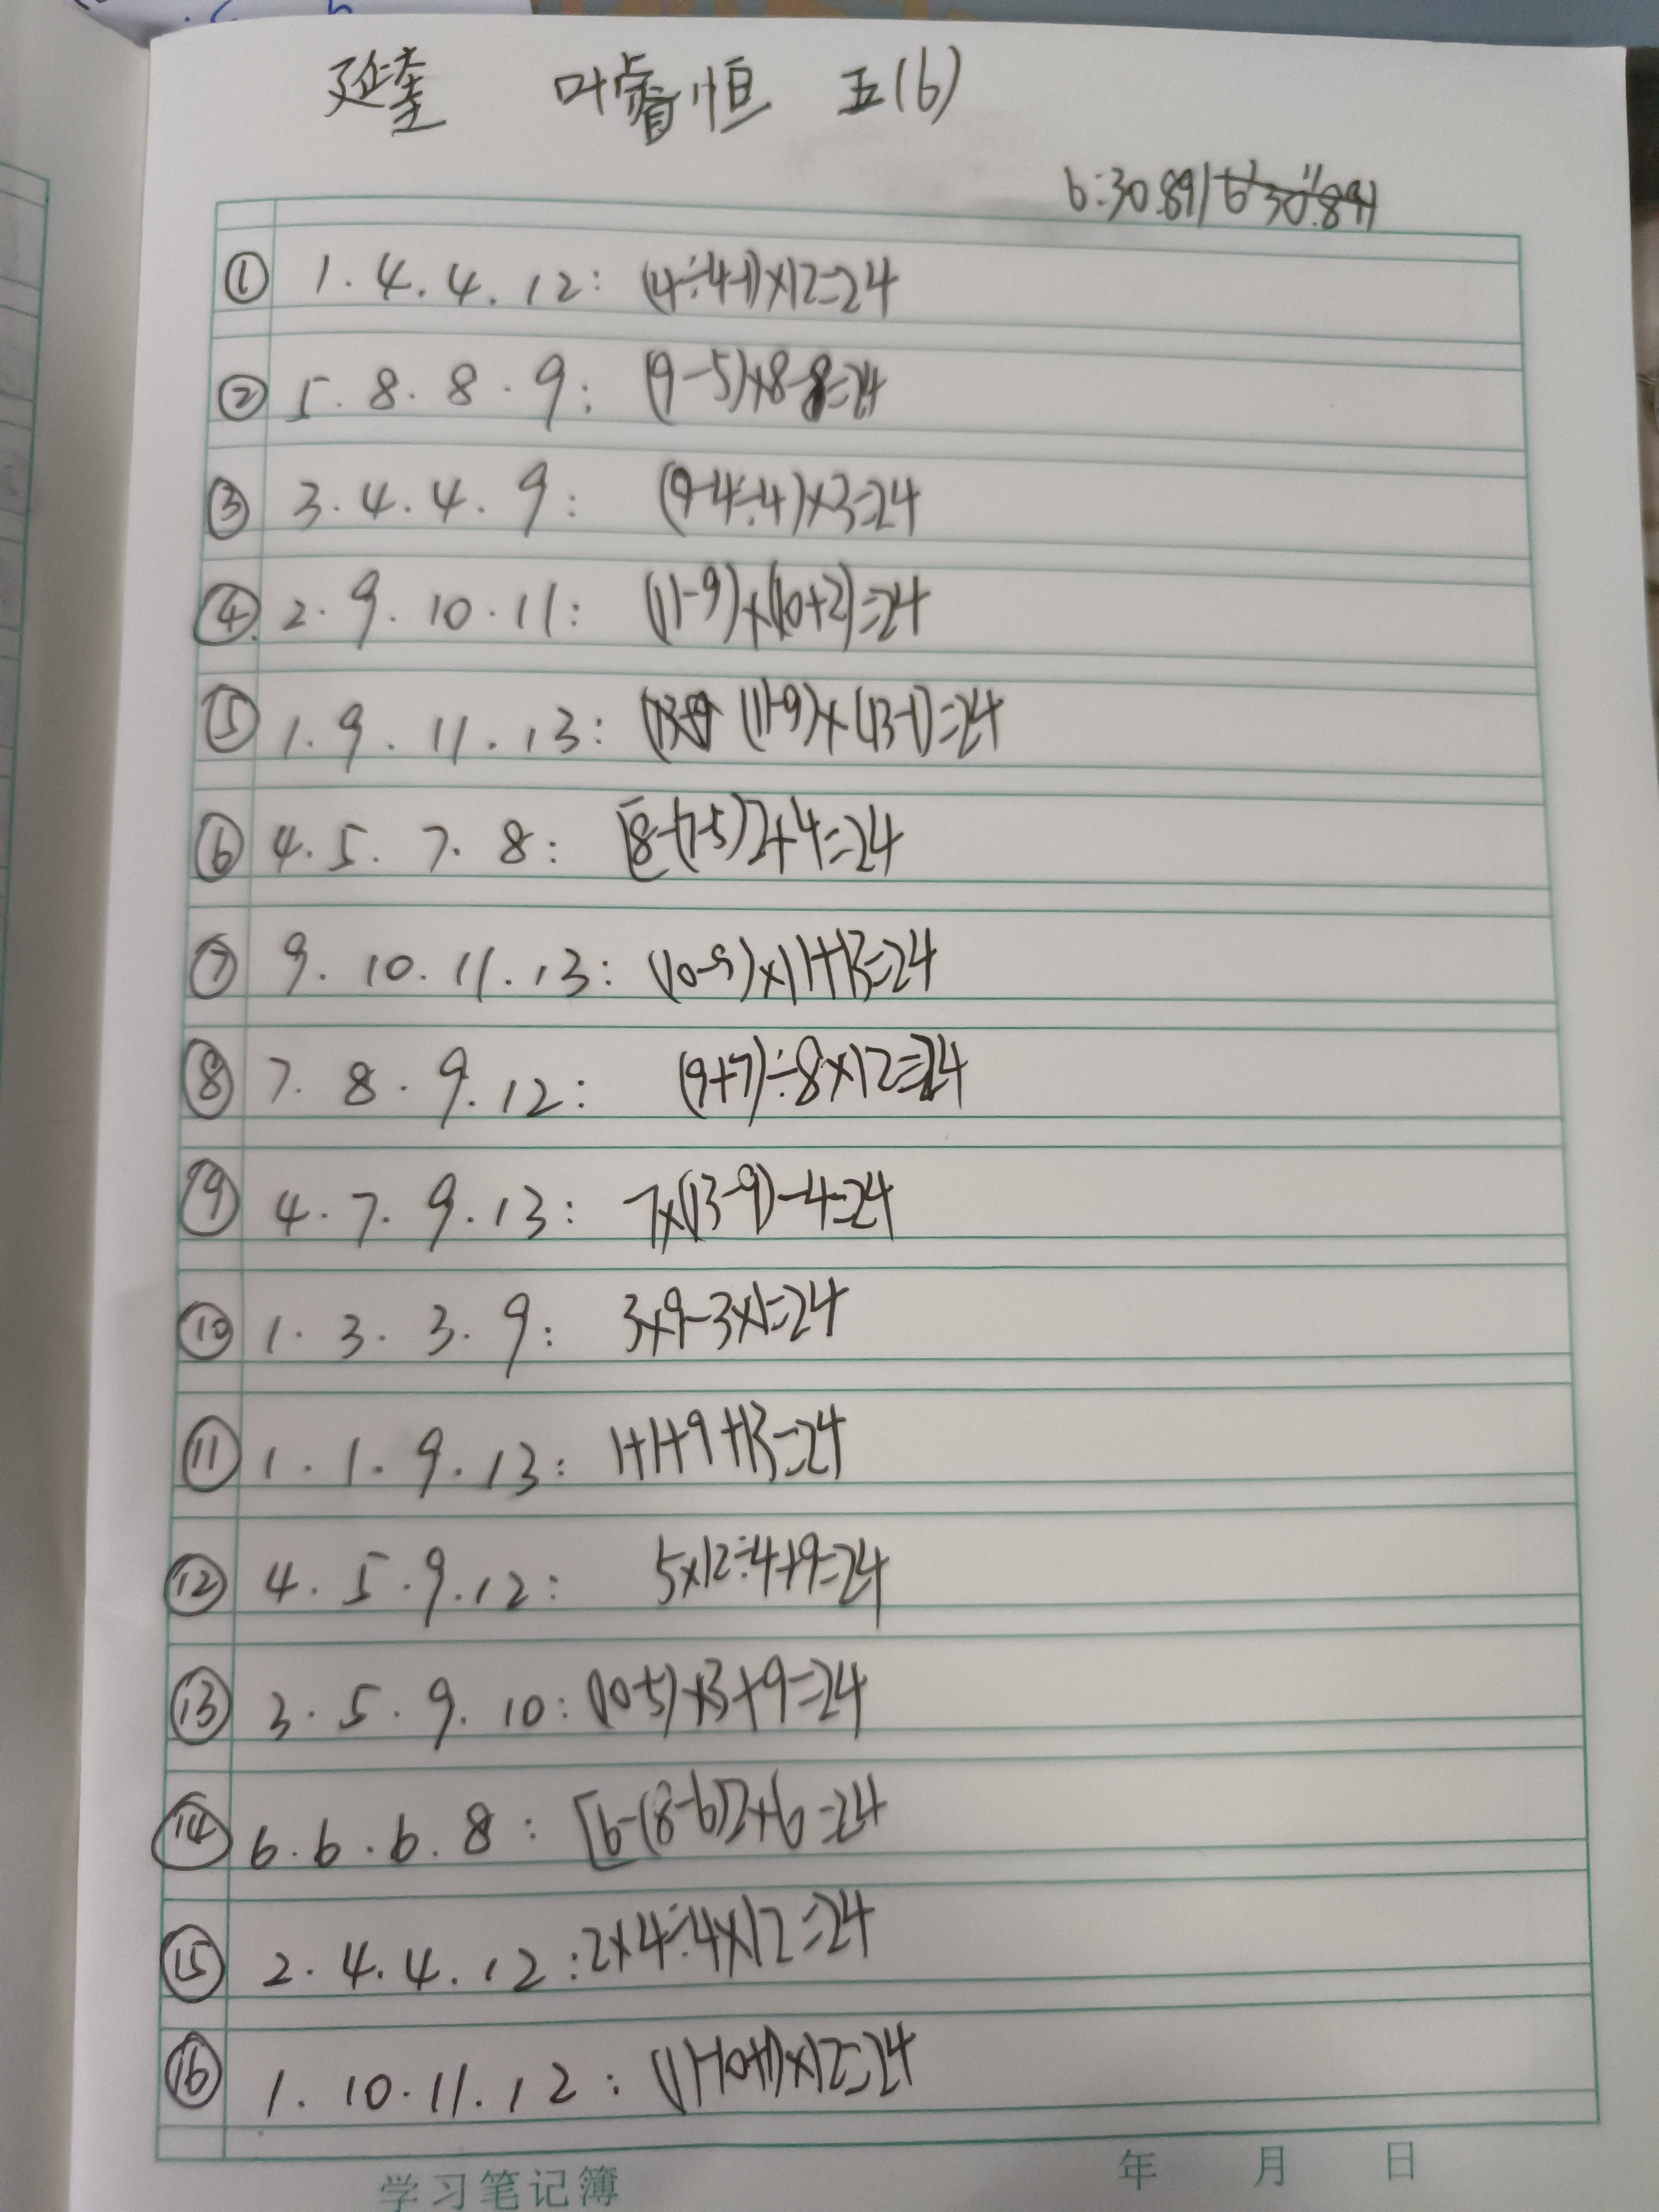 延奎 叶睿恒 五(6)
6:30.891
① 1.4.4.12: (4÷4+1)×12=24
② 5.8.8.9: (9-5)×8-8=24
③ 3.4.4.9: (9-4÷4)×3=24
④ 2.9.10.11: (11-9)×(10+2)=24
⑤ 1.9.11.13: (11-9)×(13-1)=24
⑥ 4.5.7.8: [8-(7-5)]×4=24
⑦ 9.10.11.13: (10-9)×11+13=24
⑧ 7.8.9.12: (9+7)÷8×12=24
⑨ 4.7.9.13: 7×(13-9)-4=24
⑩ 1.3.3.9: 3×9-3×1=24
⑪ 1.1.9.13: 1+1+9+13=24
⑫ 4.5.9.12: 5×12÷4+9=24
⑬ 3.5.9.10: (10-5)×3+9=24
⑭ 6.6.6.8: [6-(8-6)]×6=24
⑮ 2.4.4.12: 2×4÷4×12=24
⑯ 1.10.11.12: (11-10+1)×12=24
学习笔记簿 年 月 日